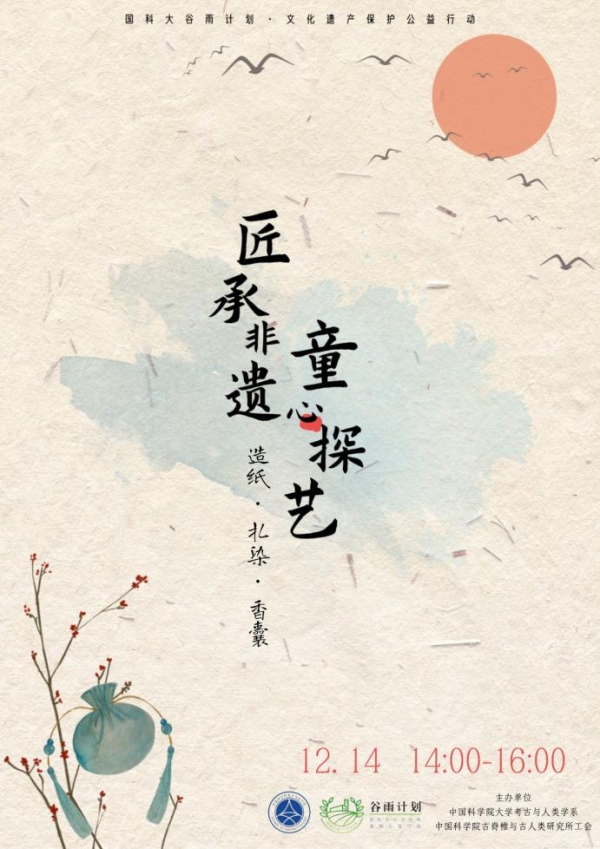 国科大谷雨计划·文化遗产保护公益行动
匠承非遗
童心探艺
造纸·扎染·香囊
12.14 14:00-16:00
谷雨计划
主办单位
中国科学院大学考古与人类学系
中国科学院古脊椎与古人类研究所工会